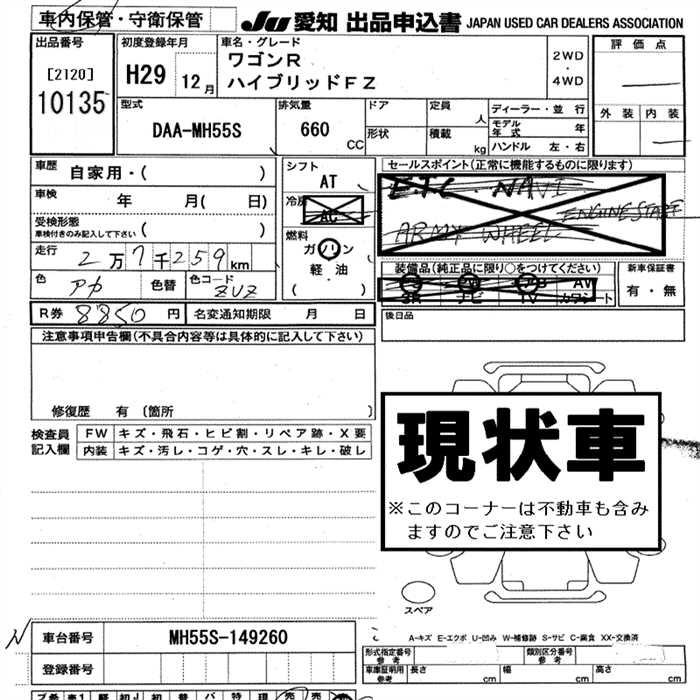 車内保管・守衛保管
JU 愛知 出品申込書 JAPAN USED CAR DEALERS ASSOCIATION
出品番号
[2120]
10135
初度登録年月
H29 12月
車名・グレード
ワゴンR
ハイブリッドFZ
2WD
・
4WD
評価点
外装 内装
型式
DAA-MH55S
排気量
660 CC
ドア
形状
定員 人
積載 kg
ディーラー・並行
モデル年式 年
ハンドル 左・右
車歴 自家用・( )
車検 年 月( 日)
受検形態
車検付きのみ記入して下さい ( )
走行 2万7千259km
色 アカ 色替 色コード ZUZ
シフト
AT
冷房
AC
燃料
ガソリン
軽油
( )
セールスポイント(正常に機能するものに限ります)
ETC. NAVI
ENGINE
WHEEL
装備品(純正品に限り○をつけてください)
PS PW AB AW
SR ナビ TV カワシート
新車保証書
有・無
R券 8850円 名変通知期限 月 日
後日品
注意事項申告欄(不具合内容等は具体的に記入して下さい)
修復歴 有〔箇所 〕
検査員
記入欄
FW キズ・飛石・ヒビ割・リペア跡・X要
内装 キズ・汚レ・コゲ・穴・スレ・キレ・破レ
現状車
※このコーナーは不動車も含み
ますのでご注意下さい
スペア
A-キズ E-エクボ U-凹み W-補修跡 S-サビ C-腐食 XX-交換済
車台番号 MH55S-149260
登録番号
形式指定番号
参考
類別区分番号
参考
車庫証明用
参考
長さ cm 幅 cm 高さ cm